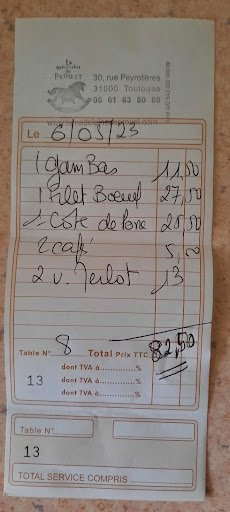 La
Madeleine
de
PROUST
30, rue Peyrolières
31000 Toulouse
05 61 63 80 88
Le 6/05/23
1 gamBas 11,50
1 filet Boeuf 27,50
1 Côte de Porc
2 café 5,
2 v. Merlot 13
Table N° 8 Total Prix TTC 82,50
dont TVA à..............%
13 dont TVA à..............%
dont TVA à..............%
Table N°
13
TOTAL SERVICE COMPRIS